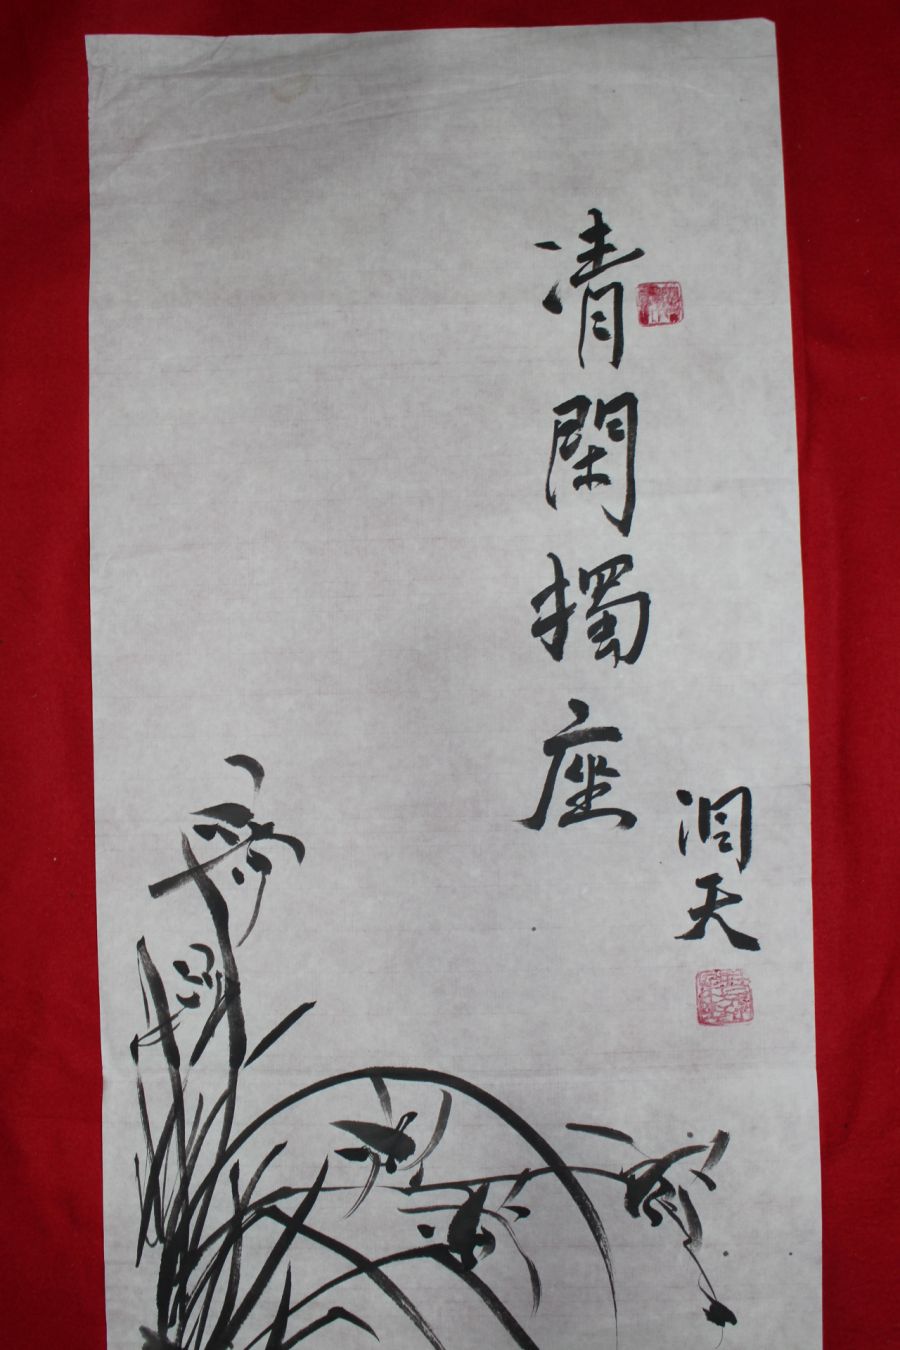 清閑獨座
洞天